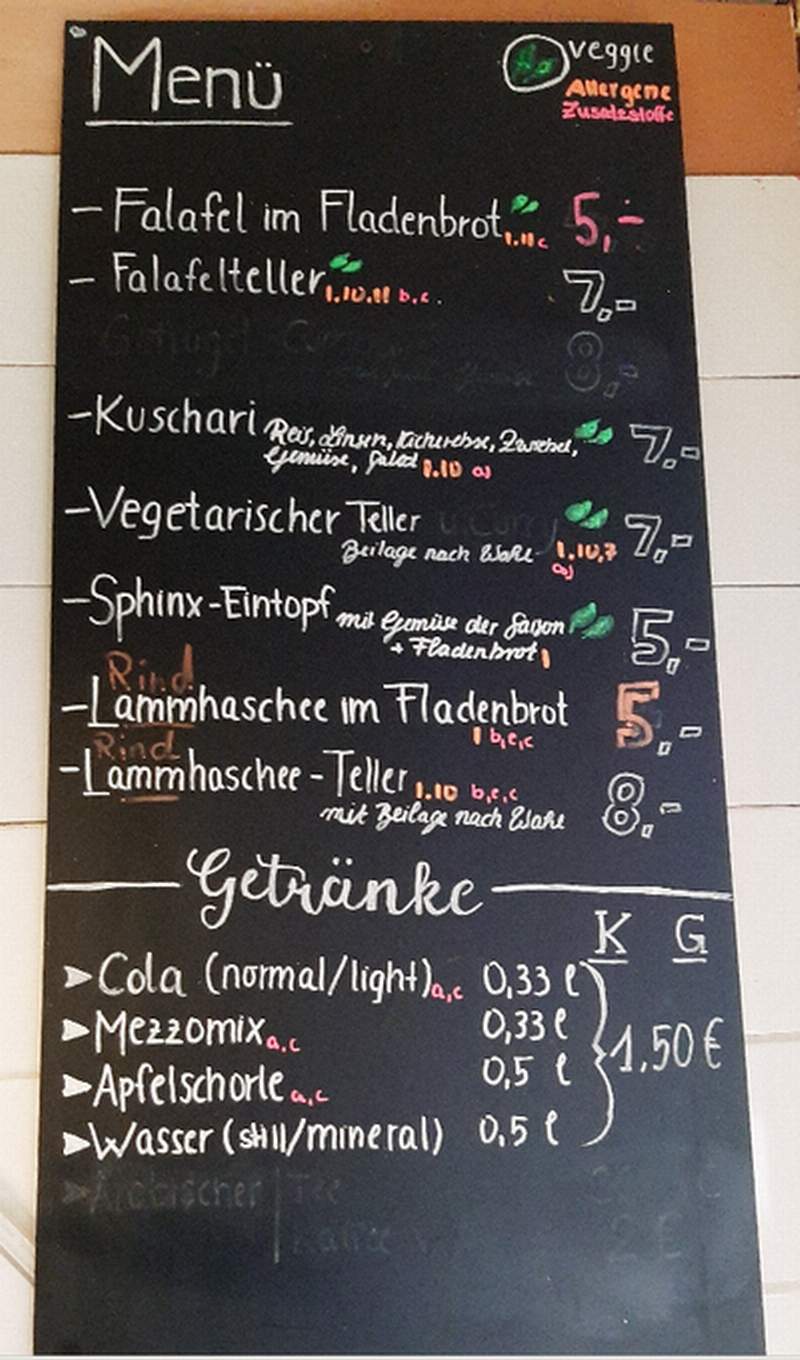 Menü
veggie
Allergene
Zusatzstoffe
- Falafel im Fladenbrot 1.11 c 5,-
- Falafelteller 1.10.11 b,c. 7,-
8,-
- Kuschari Reis, Linsen, Kichererbse, Zwiebel, 7,-
Gemüse, Salat 1.10 a)
- Vegetarischer Teller 7,-
Beilage nach Wahl 1.10,7
a)
- Sphinx-Eintopf mit Gemüse der Saison 5,-
+ Fladenbrot 1
Rind
- Lammhaschee im Fladenbrot 5,-
1 b,e,c
Rind
- Lammhaschee-Teller 1.10 b,e,c 8,-
mit Beilage nach Wahl
Getränke
K G
➤ Cola (normal/light) a,c 0,33 l
➤ Mezzomix a,c 0,33 l
1,50 €
➤ Apfelschorle a,c 0,5 l
➤ Wasser (still/mineral) 0,5 l
➤ Arabischer Tee
Kaffee 2 €